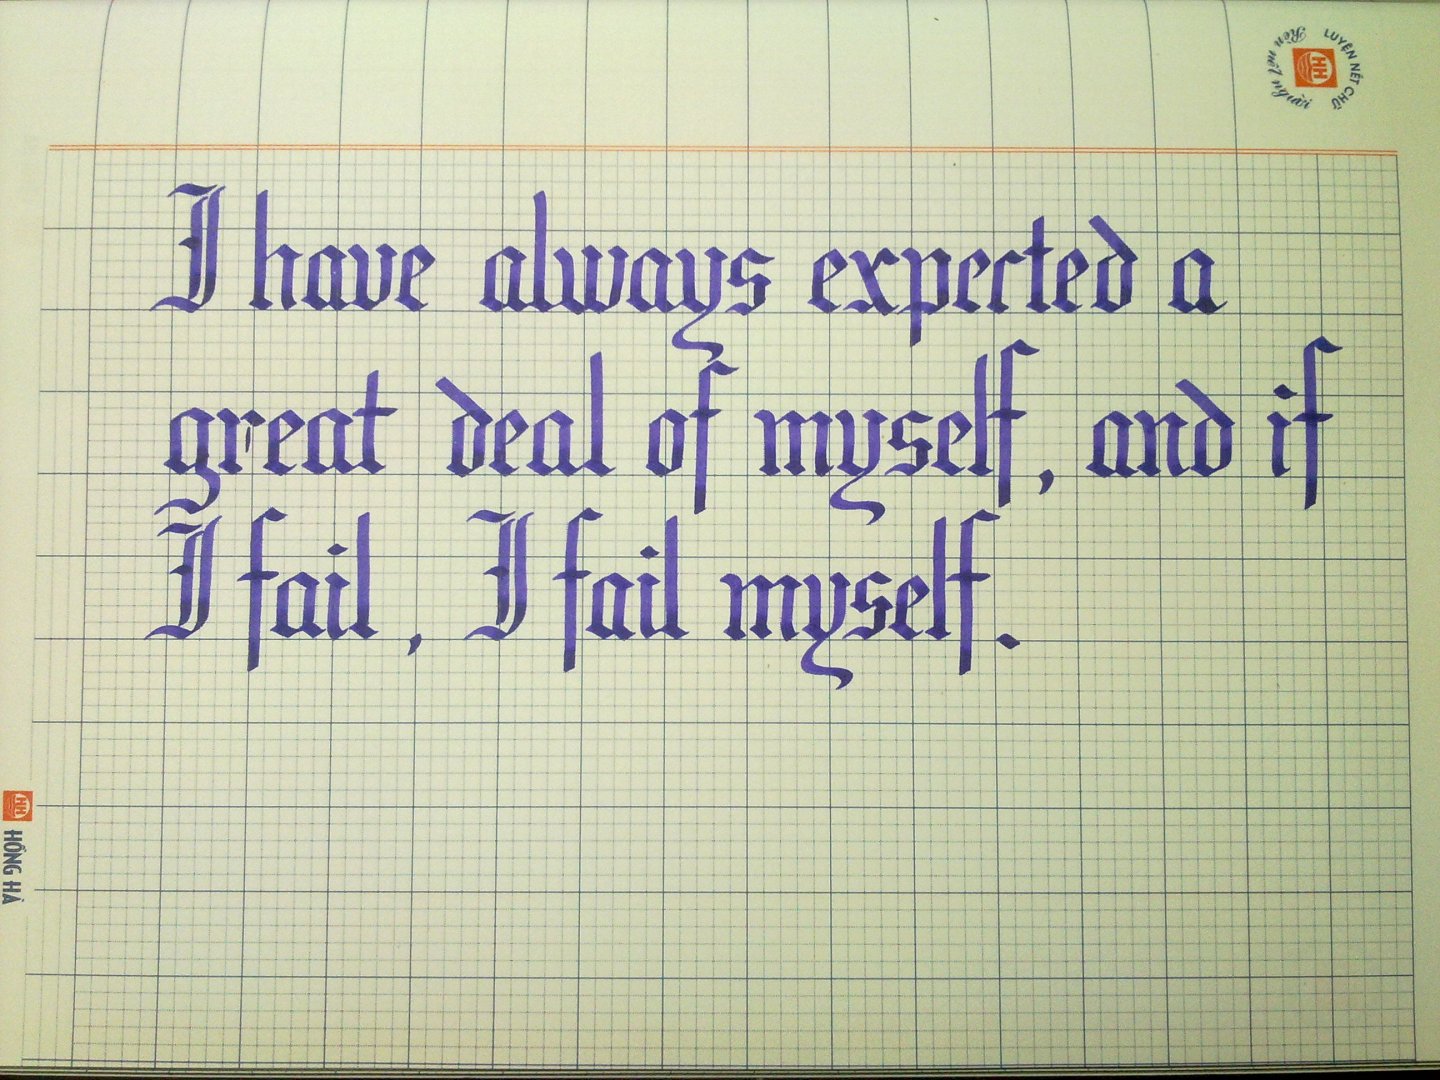 LUYỆN NÉT CHỮ
Rèn nết người
I have always expected a
great deal of myself, and if
I fail, I fail myself.
HỒNG HÀ